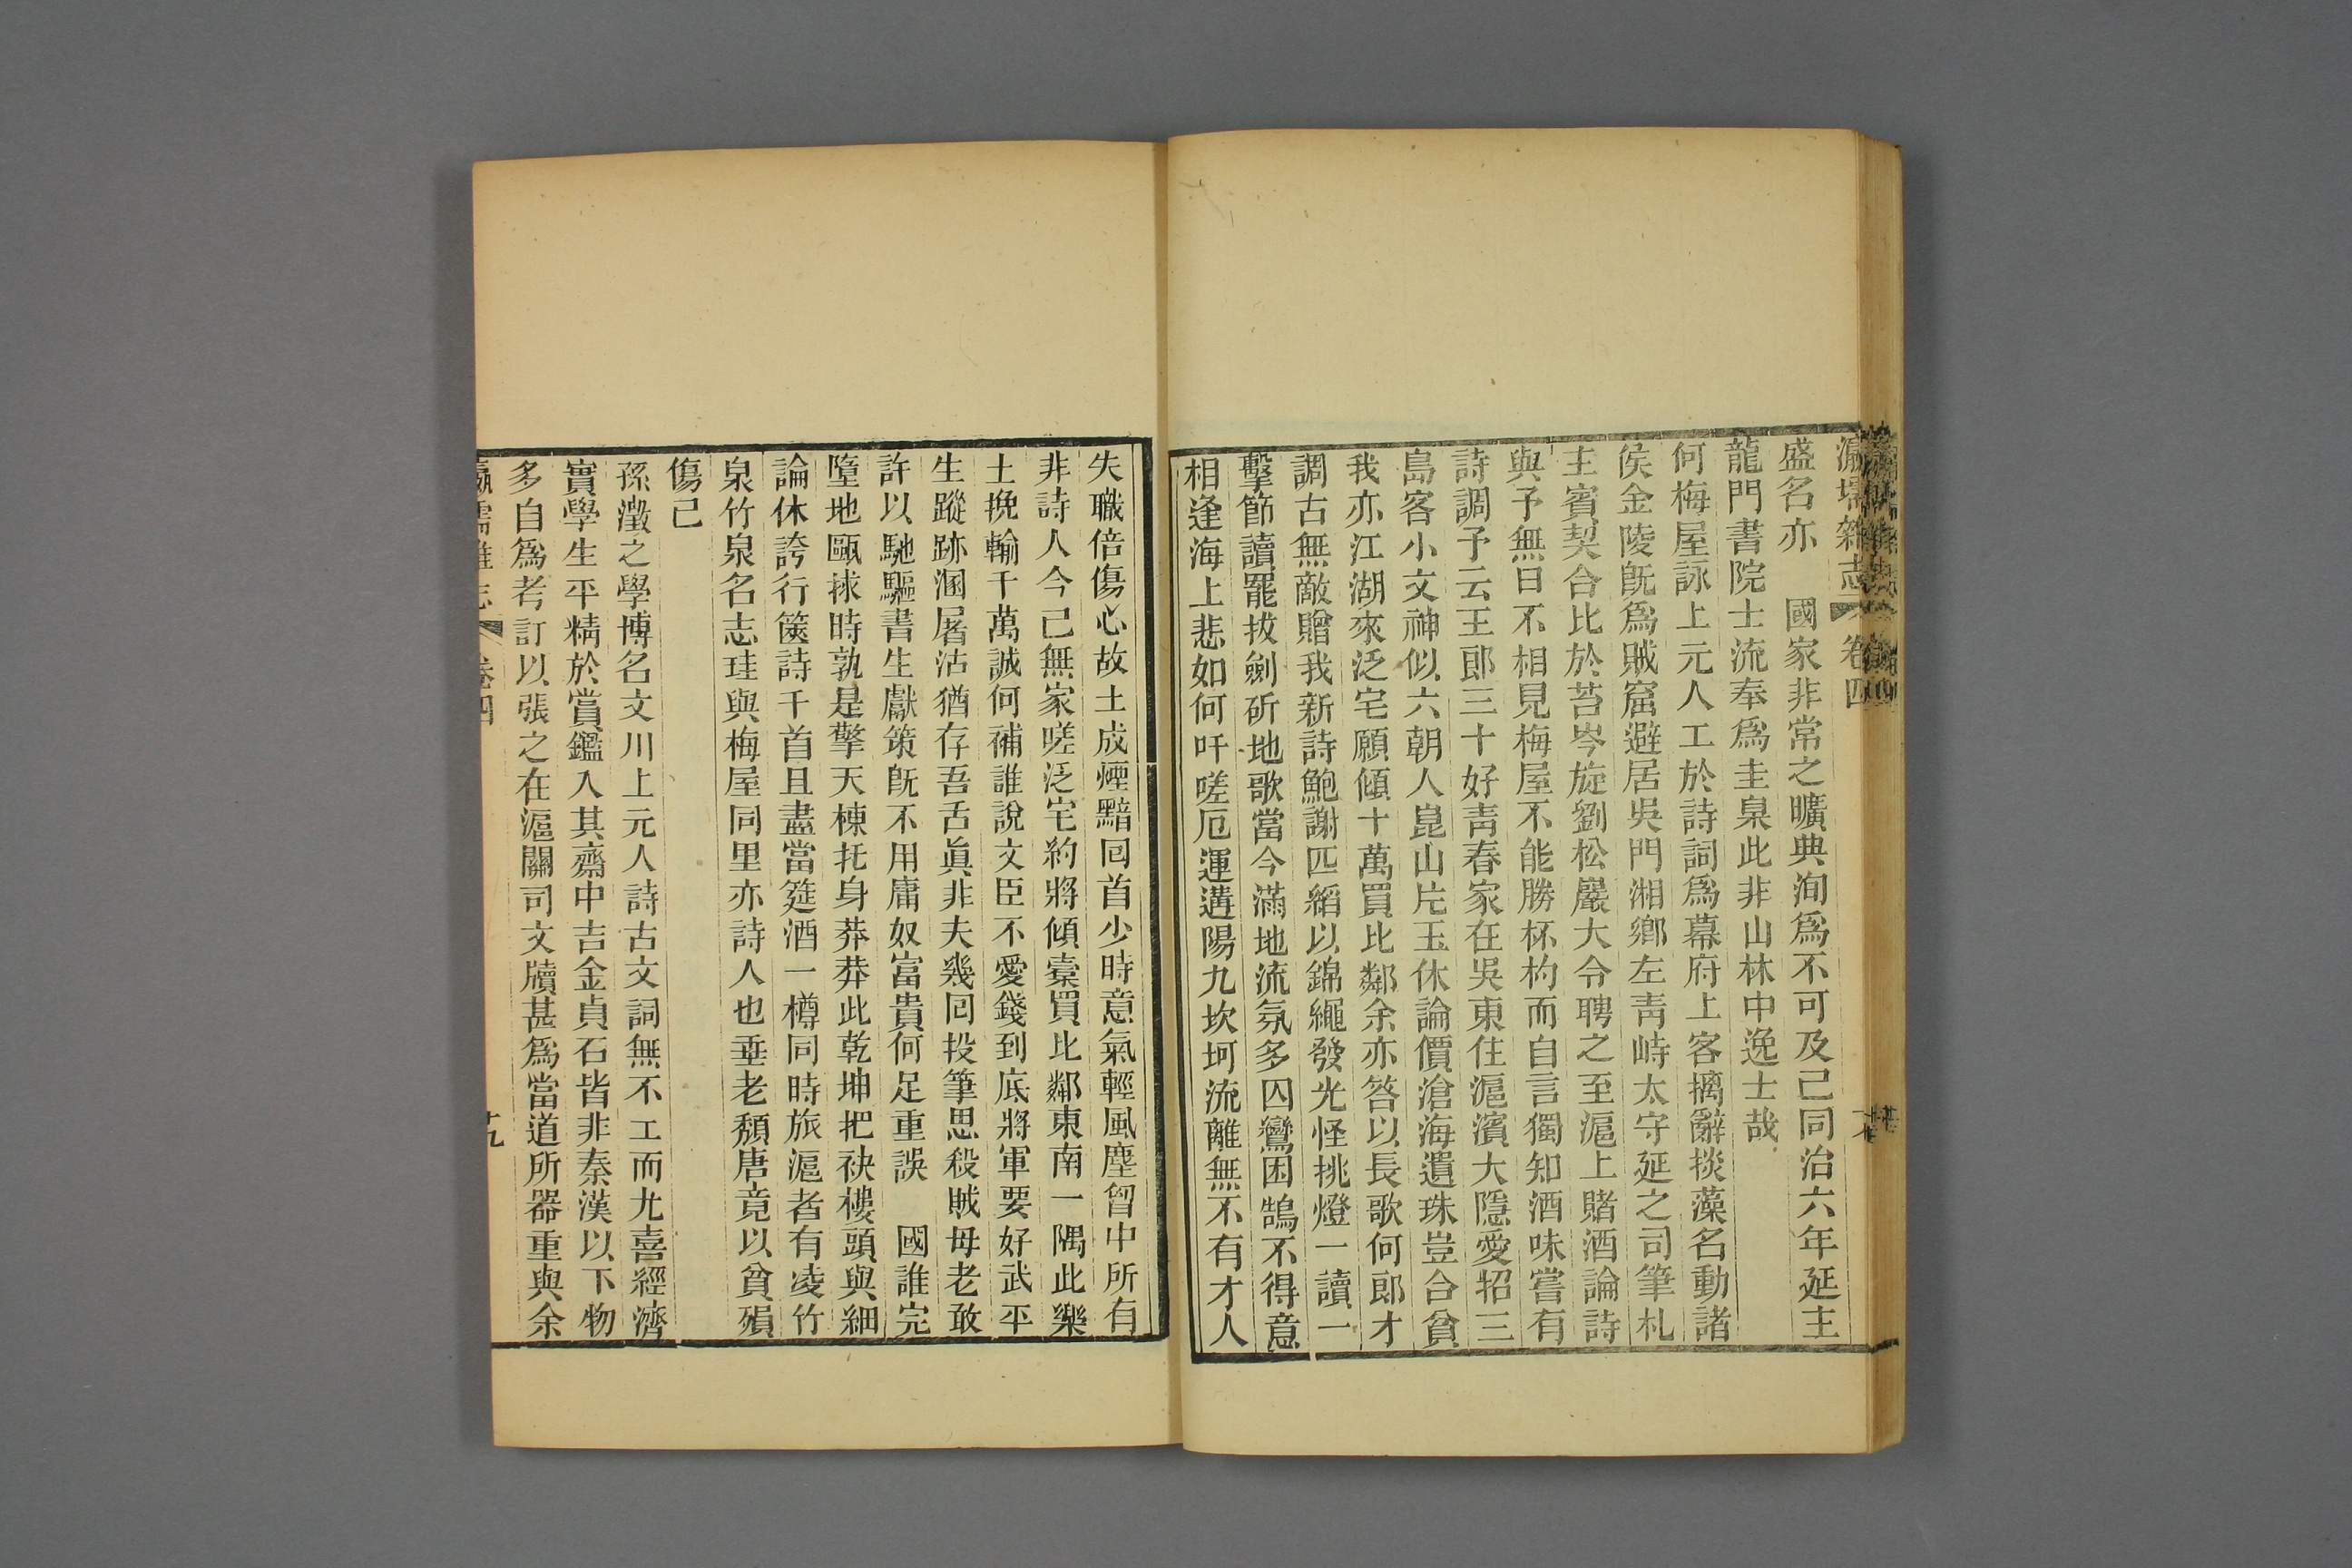 瀛壖雜志 卷四
盛名亦 國家非常之曠典洵爲不可及已同治六年延主
龍門書院士流奉爲圭臬此非山林中逸士哉
何梅屋詠上元人工於詩詞爲幕府上客摛辭掞藻名動諸
侯金陵旣爲賊窟避居吳門湘鄕左靑峙太守延之司筆札
主賓契合比於苔岑旋劉松巖大令聘之至滬上賭酒論詩
與予無日不相見梅屋不能勝杯杓而自言獨知酒味嘗有
詩調予云王郎三十好靑春家在吳東住滬濱大隱愛招三
島客小文神似六朝人崑山片玉休論價滄海遺珠豈合貧
我亦江湖來泛宅願傾十萬買比鄰余亦答以長歌何郎才
調古無敵贈我新詩鮑謝匹縚以錦繩發光怪挑燈一讀一
擊節讀罷拔劍斫地歌當今滿地流氛多囚鸞困鵠不得意
相逢海上悲如何吁嗟厄運遘陽九坎坷流離無不有才人
失職倍傷心故土成煙黯回首少時意氣輕風塵曾中所有
非詩人今已無家嗟泛宅約將傾橐買比鄰東南一隅此樂
土挽輸千萬誠何補誰說文臣不愛錢到底將軍要好武平
生蹤跡溷屠沽猶存吾舌眞非夫幾回投筆思殺賊母老敢
許以馳驅書生獻策旣不用庸奴富貴何足重誤 國誰完
墮地甌捄時孰是擎天棟托身莽莽此乾坤把袂樓頭與細
論休誇行篋詩千首且盡當筵酒一樽同時旅滬者有凌竹
泉竹泉名志珪與梅屋同里亦詩人也垂老頽唐竟以貧殞
傷已
孫瀓之學博名文川上元人詩古文詞無不工而尤喜經濟
實學生平精於賞鑑入其齋中吉金貞石皆非秦漢以下物
多自爲考訂以張之在滬關司文牘甚爲當道所器重與余
瀛壖雜志 卷四 十九